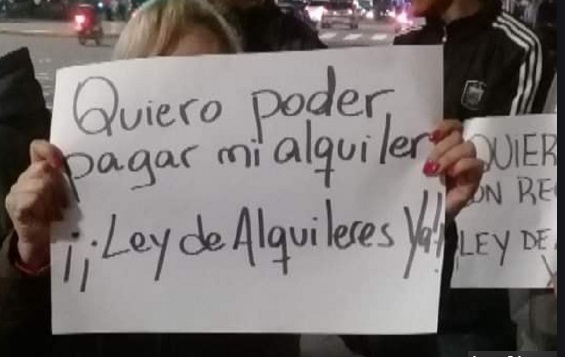 Quiero poder
pagar mi alquiler
¡¡Ley de Alquileres Ya!!
QUIER
ON RE
LEY DE